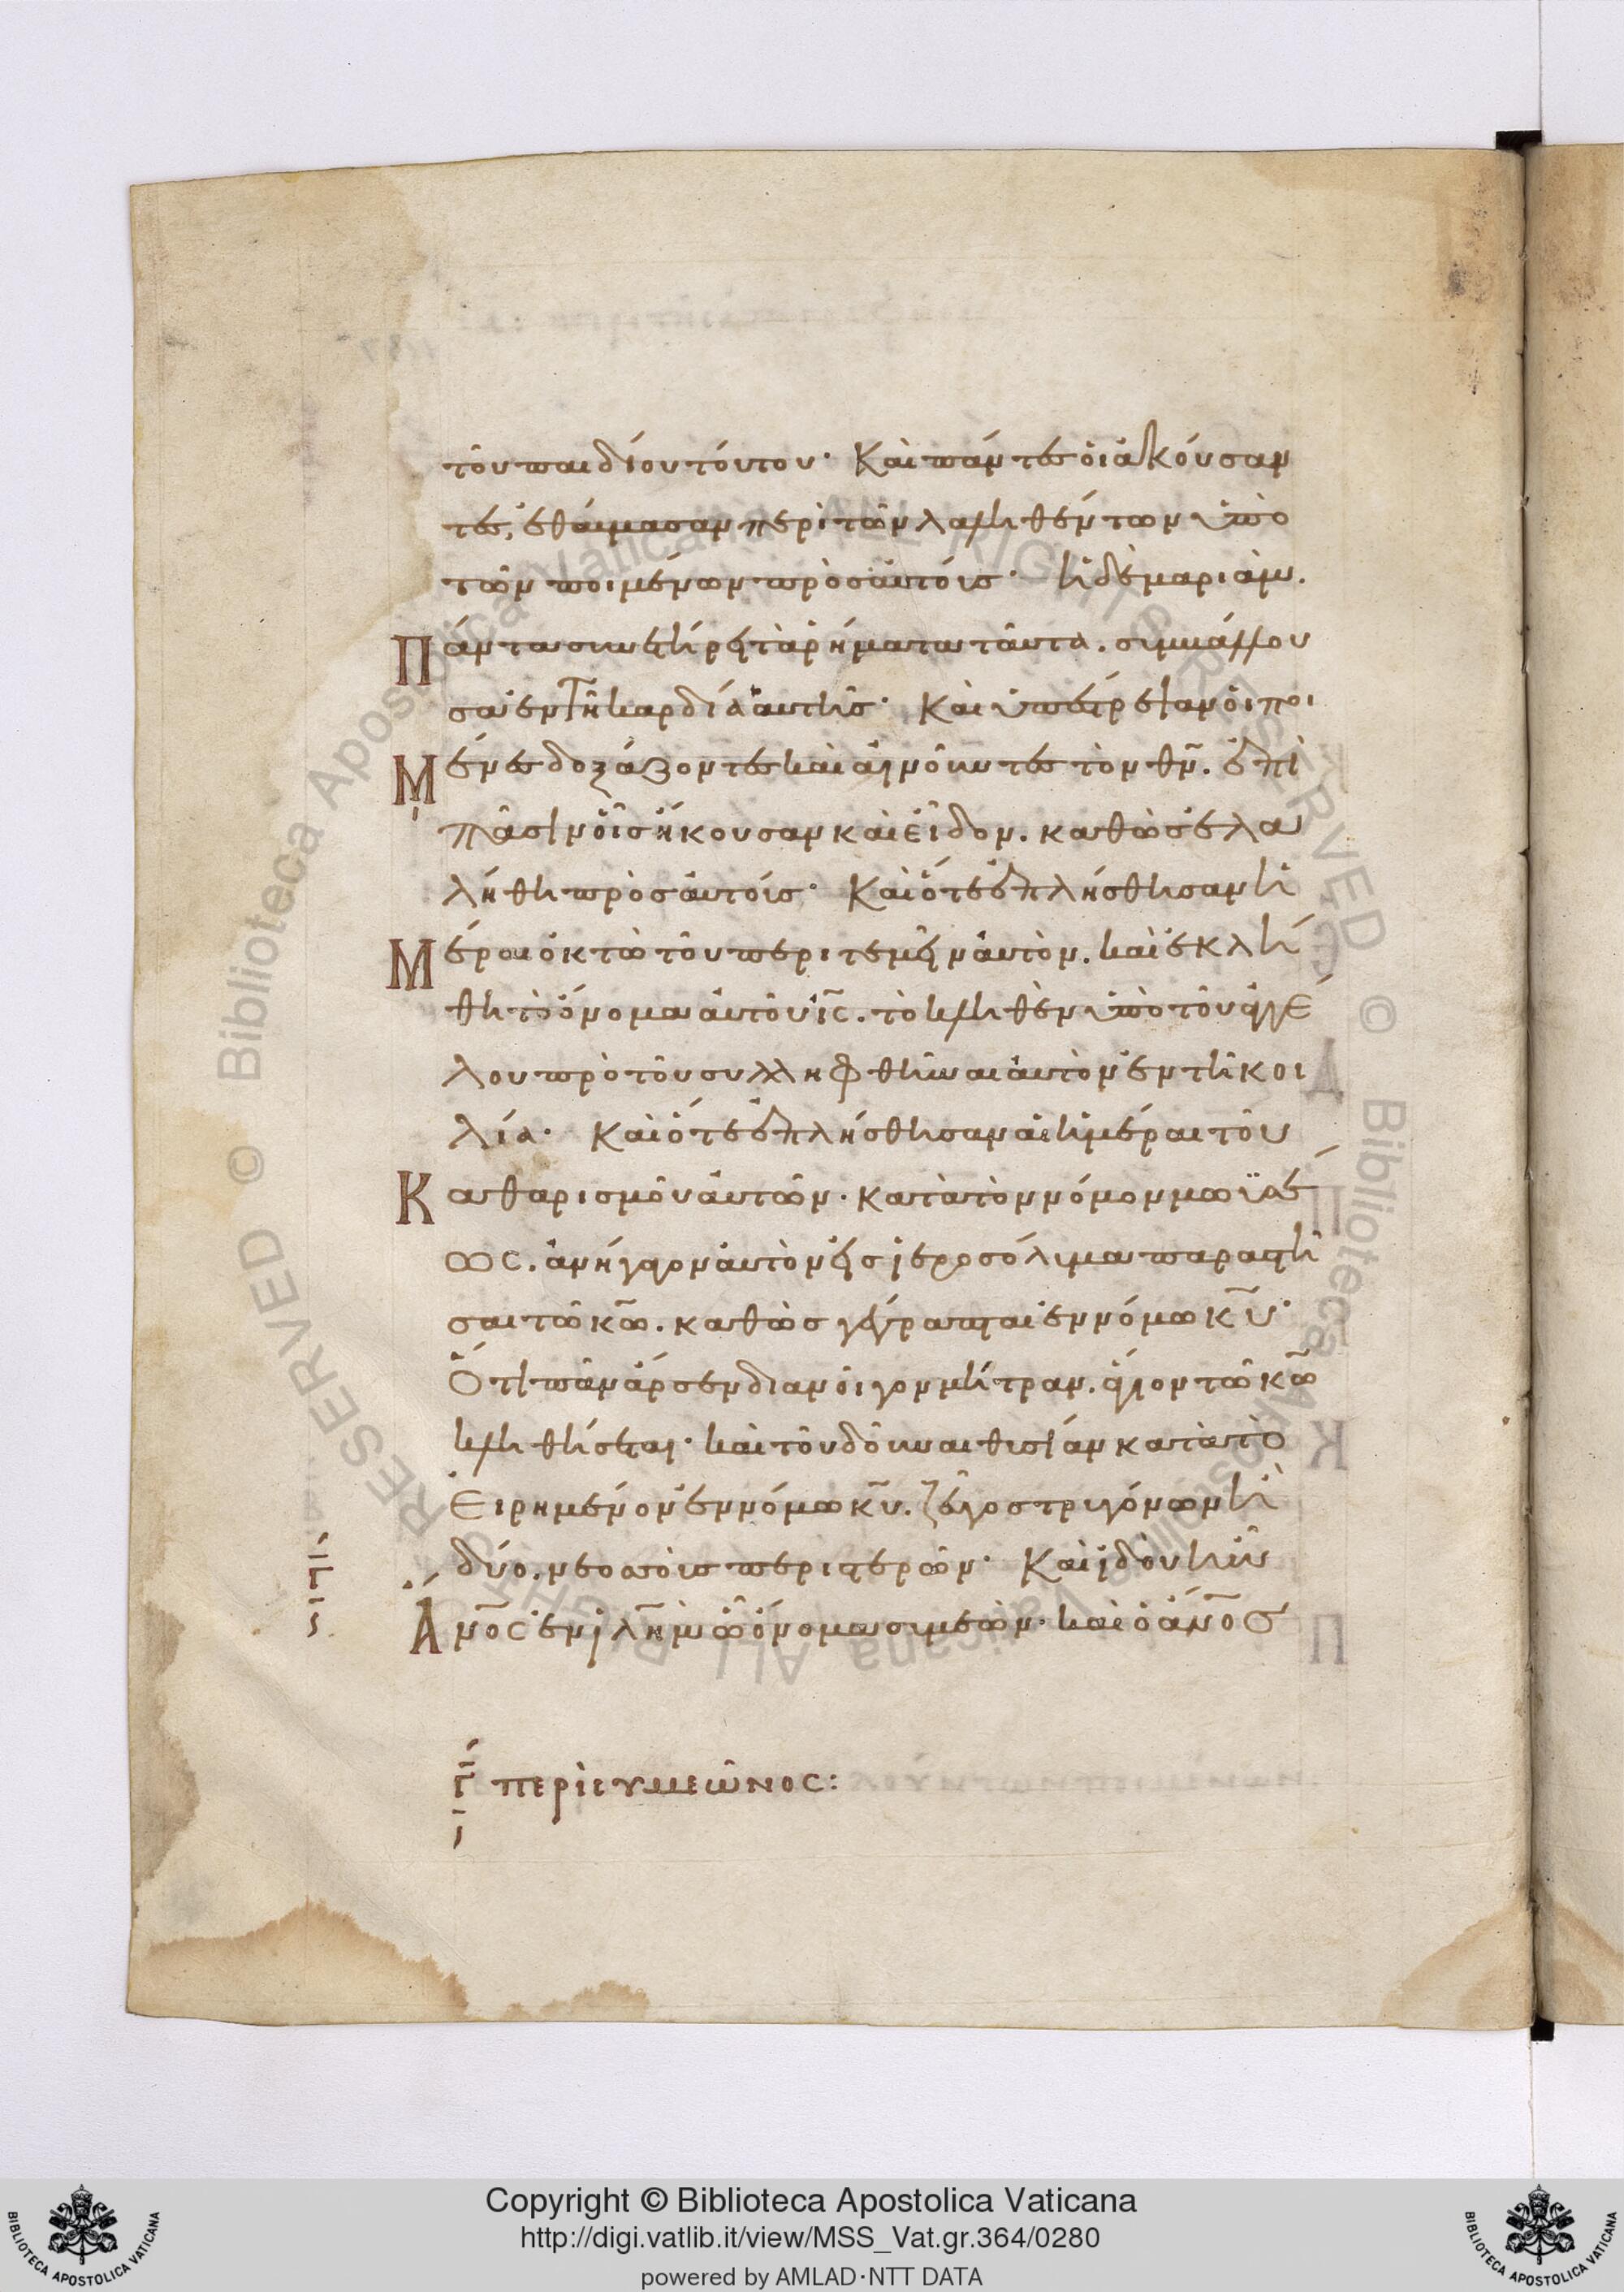 τοῦ παιδίου τούτου· Καὶ πάντες οἱ ἀκούσαν
τες, ἐθαύμασαν περὶ τῶν λαληθέντων ὑπὸ
τῶν ποιμένων πρὸς αὐτούς· ἡ δὲ μαριὰμ.
Πάντα συνετήρει τὰ ῥήματα ταῦτα. συμβάλλου
σα ἐν τῆ καρδία αὐτῆς· Καὶ ὑπέστρεψαν οἱ ποι
Μένες δοξάζοντες καὶ αἰνοῦντες τὸν θν. ἐπὶ
πᾶσιν οἷς ἤκουσαν καὶ εἶδον. καθὼς ἐλα
λήθη πρὸς αὐτούς· Καὶ ὅτε ἐπλήσθησαν ἡ
Μέραι ὀκτὼ τοῦ περιτεμεῖν αὐτὸν. καὶ ἐκλή
θη τὸ ὄνομα αὐτοῦ ις. τὸ κληθὲν ὑπὸ τοῦ ἀγγέ
λου πρὸ τοῦ συλληφθῆναι αὐτὸν ἐν τῆ κοι
λία· Καὶ ὅτε ἐπλήσθησαν αἱ ἡμέραι τοῦ
Καθαρισμοῦ αὐτῶν· κατὰ τὸν νόμον μωϊσέ
ως. ἀνήγαγον αὐτὸν εἰς ἱεροσόλυμα παραστῆ
σαι τῶ κω. καθὼς γέγραπται ἐν νόμω κυ·
Ὅτι πᾶν ἄρσεν διανοῖγον μήτραν. ἅγιον τῶ κω
κληθήσεται· καὶ τοῦ δοῦναι θυσίαν κατὰ τὸ
Εἰρημένον ἐν νόμω κυ. ζεῦγος τρυγόνων ἢ
δύο. νεοσσοὺς περιστερῶν· Καὶ ἰδοὺ ἦν
Ἀνος ἐν ιλημ ὧ ὄνομα συμεὼν· καὶ ὁ ανος
Γ περὶ συμεῶνος:
Copyright © Biblioteca Apostolica Vaticana
http://digi.vatlib.it/view/MSS_Vat.gr.364/0280
powered by AMLAD·NTT DATA
BIBLIOTECA APOSTOLICA VATICANA
BIBLIOTECA APOSTOLICA VATICANA